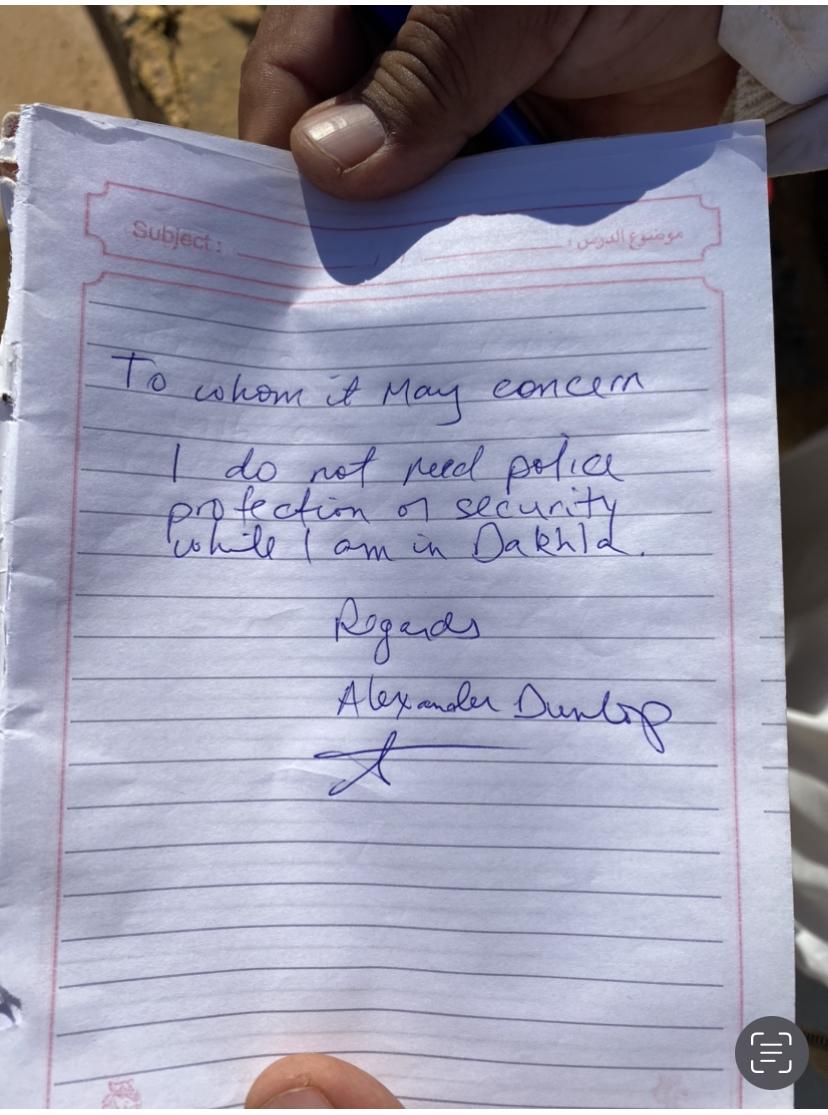 Subject :
موضوع الدرس :
To whom it May concern
I do not need police
protection or security
while I am in Dakhla.
Regards
Alexander Dunlop